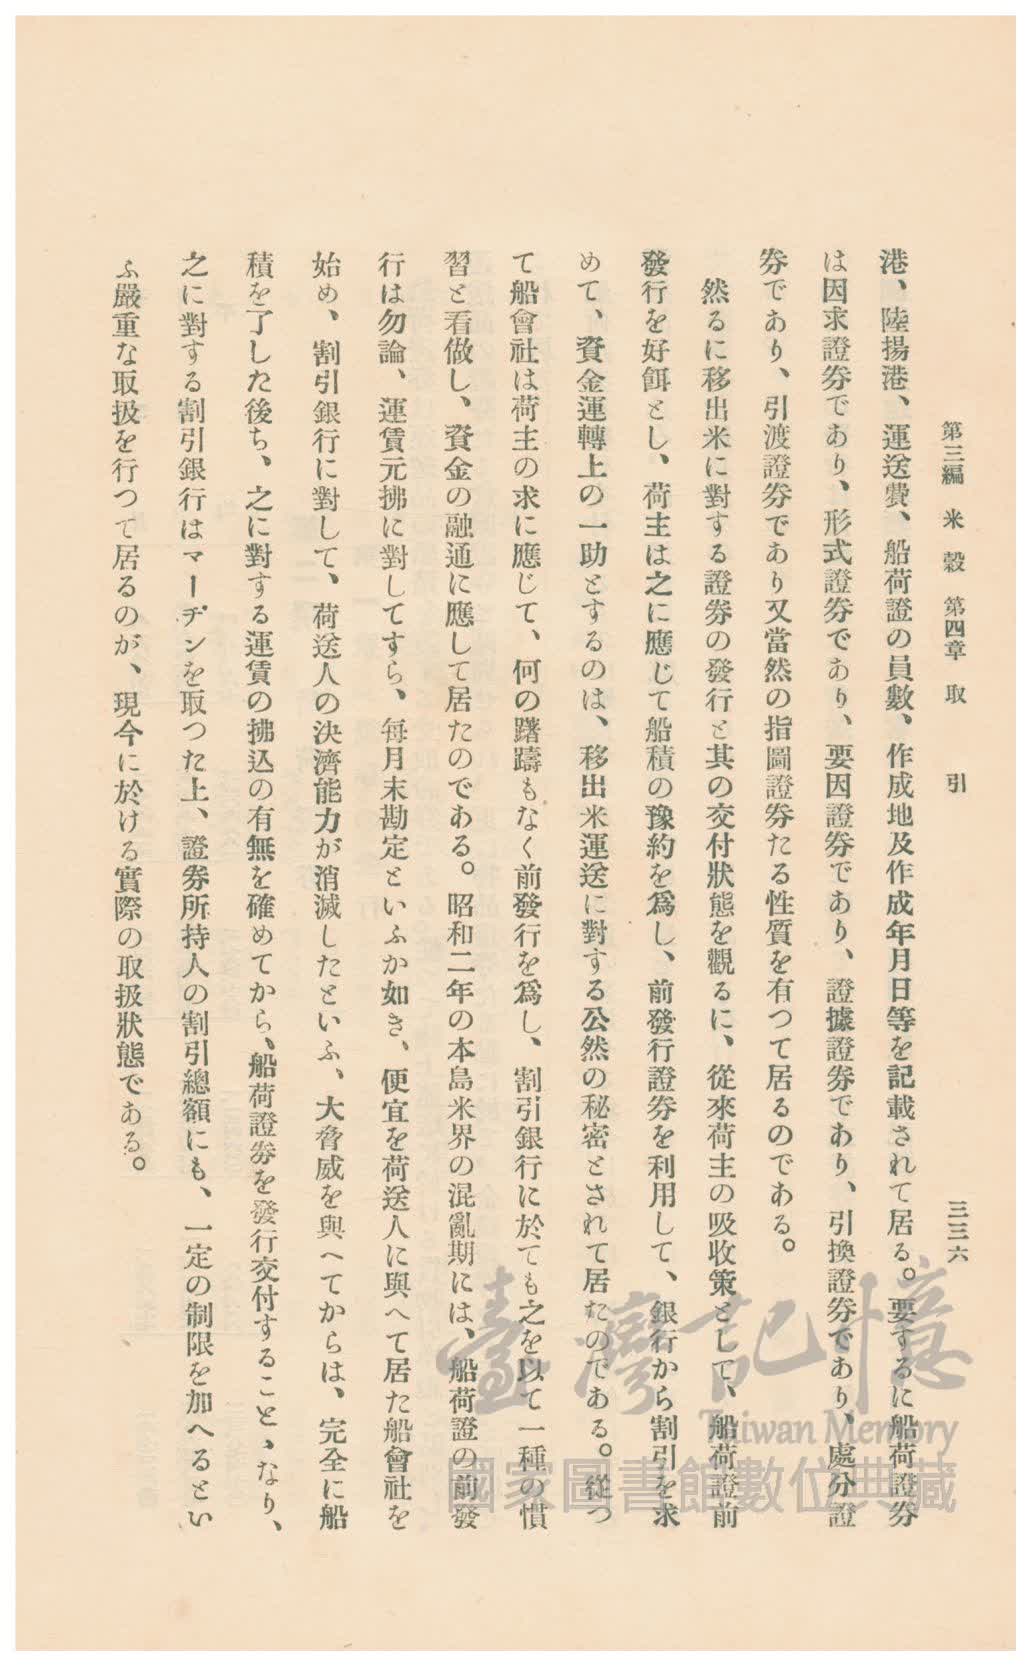 第三編　米穀　第四章　取引　三三六
港、陸揚港、運送費、船荷證の員數、作成地及作成年月日等を記載されて居る。要するに船荷證券
は因求證券であり、形式證券であり、要因證券であり、證據證券であり、引換證券であり、處分證
券であり、引渡證券であり又當然の指圖證券たる性質を有つて居るのである。
然るに移出米に對する證券の發行と其の交付狀態を觀るに、從來荷主の吸收策として、船荷證前
發行を好餌とし、荷主は之に應じて船積の豫約を爲し、前發行證券を利用して、銀行から割引を求
めて、資金運轉上の一助とするのは、移出米運送に對する公然の秘密とされて居たのである。從つ
て船會社は荷主の求に應じて、何の躊躇もなく前發行を爲し、割引銀行に於ても之を以て一種の慣
習と看做し、資金の融通に應して居たのである。昭和二年の本島米界の混亂期には、船荷證の前發
行は勿論、運賃元拂に對してすら、每月末勘定といふか如き、便宜を荷送人に與へて居た船會社を
始め、割引銀行に對して、荷送人の決濟能力が消滅したといふ、大脅威を與へてからは、完全に船
積を了した後ち、之に對する運賃の拂込の有無を確めてから、船荷證券を發行交付すること、なり、
之に對する割引銀行はマーヂンを取つた上、證券所持人の割引總額にも、一定の制限を加へるとい
ふ嚴重な取扱を行つて居るのが、現今に於ける實際の取扱狀態である。
臺灣記憶
Taiwan Memory
國家圖書館數位典藏